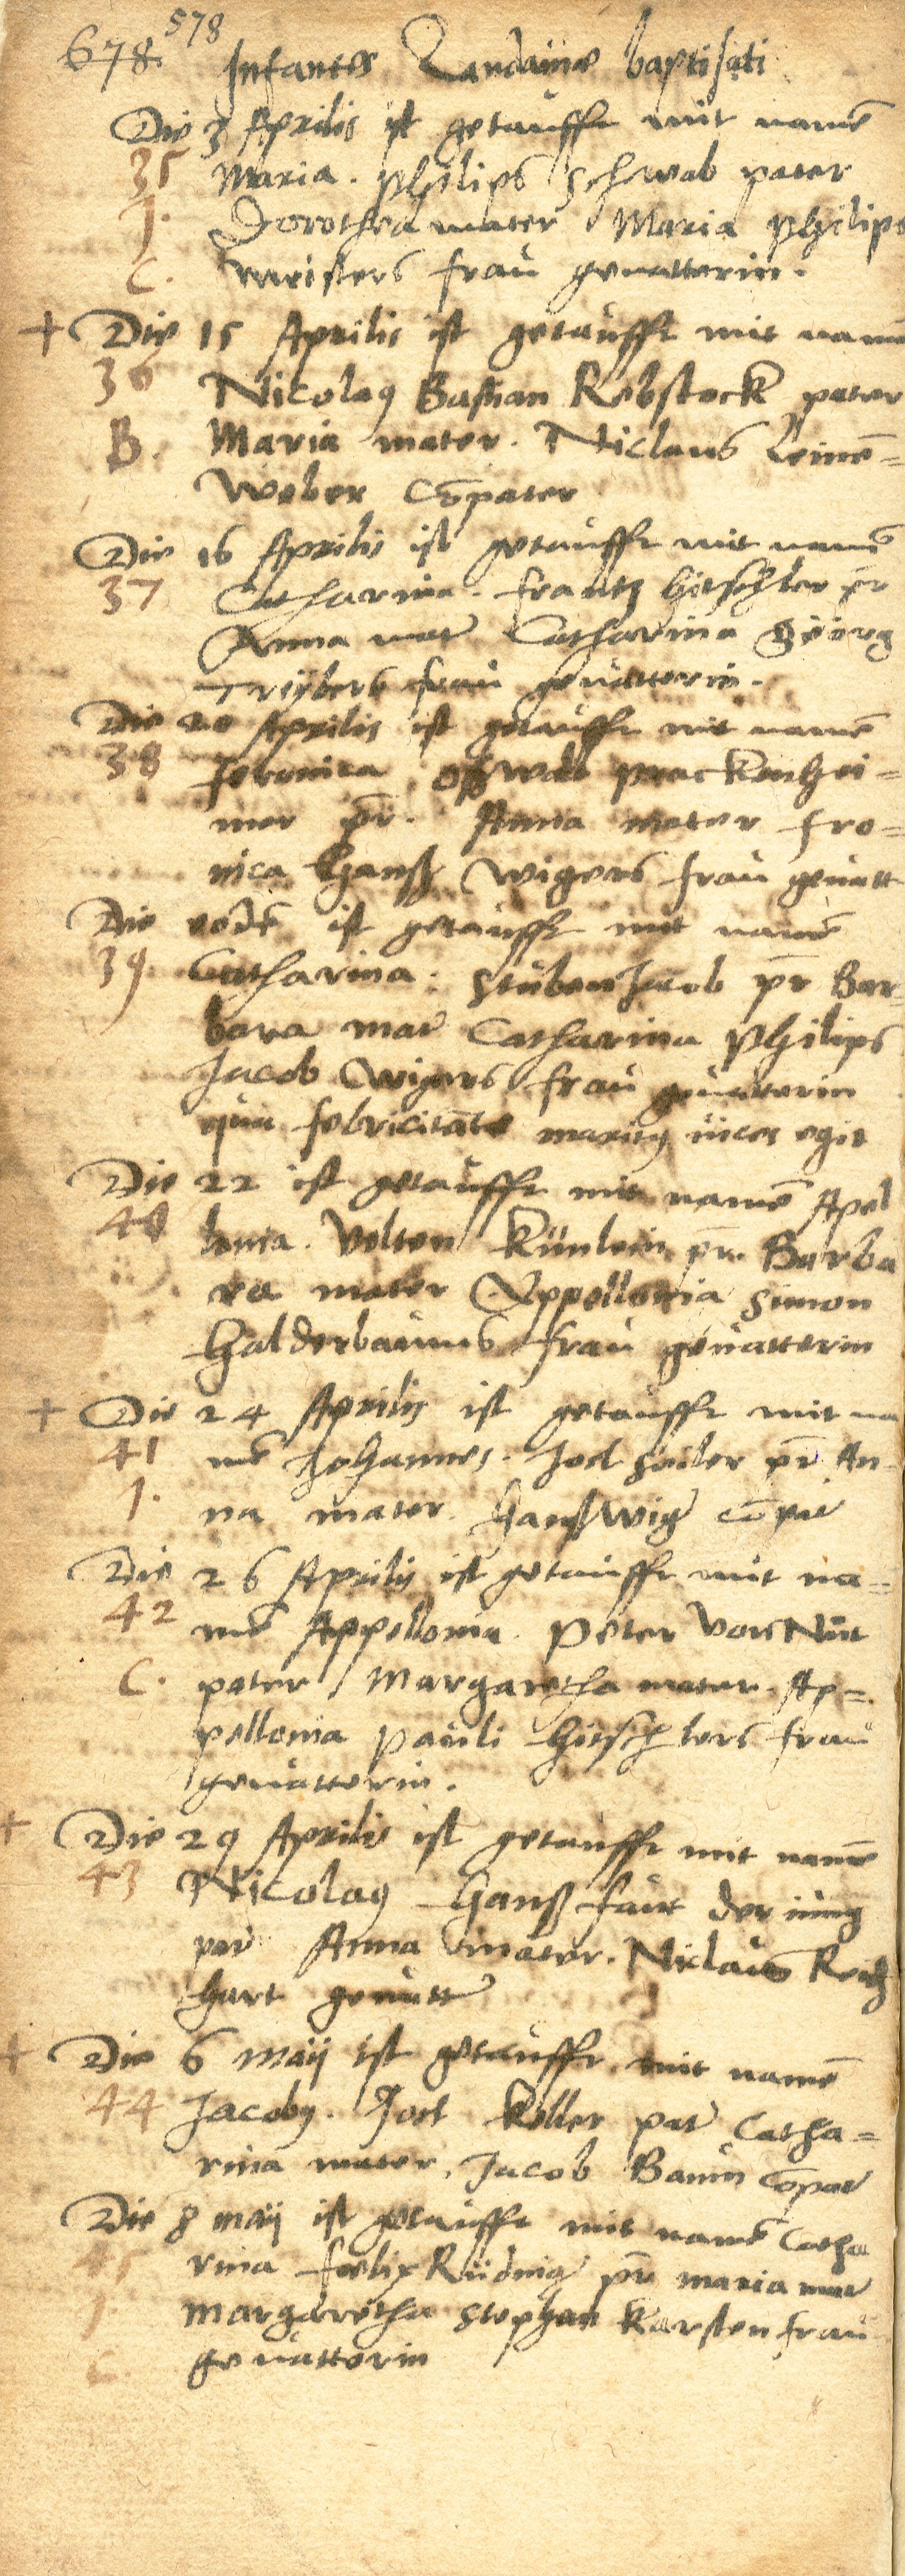 578
678. Infantes Landaviae baptisati
Die 3 Aprilis ist getaufft mit namē
35 Maria. Philips Schwab pater
J. Dorothea mater Maria Philips
C. Meisters frau gevatterin.
+ Die 15 Aprilis ist getaufft mit namē
36 Nicolaꝰ Bastian Rebstock pater
B. Maria mater. Niclaus Leinē=
Weber Cōpater
Die 16 Aprilis ist getaufft mit namē
37 Catharina. frantz Hitschler pr̄
Anna mat̄ Catharina Geörg
frau gevatterin.
Die 20 Aprilis ist getaufft mit namē
38 feronica Oßwalt Mackenhei=
mer pr̄. Anna mater fro=
nica Hanß Wigers frau gevatt
Die eodē ist getaufft mit namē
39 Catharina. Stüben Jacob pr̄ Bar=
bara mat̄ Catharina Philips
Jacob Wigers frau gevatterin
febricitāte maritꝰ vices egit
Die 22 ist getaufft mit namē Apel
40 lonia. Velten Künlein pr̄. Barba
ra mater Appellonia Simon
Halderbaums frau gevatterin
+ Die 24 Aprilis ist getaufft mit na
41 mē Johannes. Jost Seiler pr̄ An
J. na mater. Hanß Wiḡ cōpat̄
Die 26 Aprilis ist getaufft mit na=
42 mē Appellonia. Peter Von
C. pater Margaretha mater. Ap=
pellonia Pauli Hitschlers frau
gevatterin.
+ Die 29 Aprilis ist getaufft mit namē
43 Nicolaꝰ Hanß faut der iung
pat̄ Anna mater. Niclaus Reich
hart gevatt̄
+ Die 6 Maij ist getaufft mit namē
44 Jacobꝰ. Jost Keller pat̄ Catha=
rina mater. Jacob Baum cōpat̄
Die 8 Maij ist getaufft mit namē Catha
45 rina foelix Rüdinḡ pr̄ Maria mat̄
J. Margaretha Stephan Karsten frau
C. gevatterin